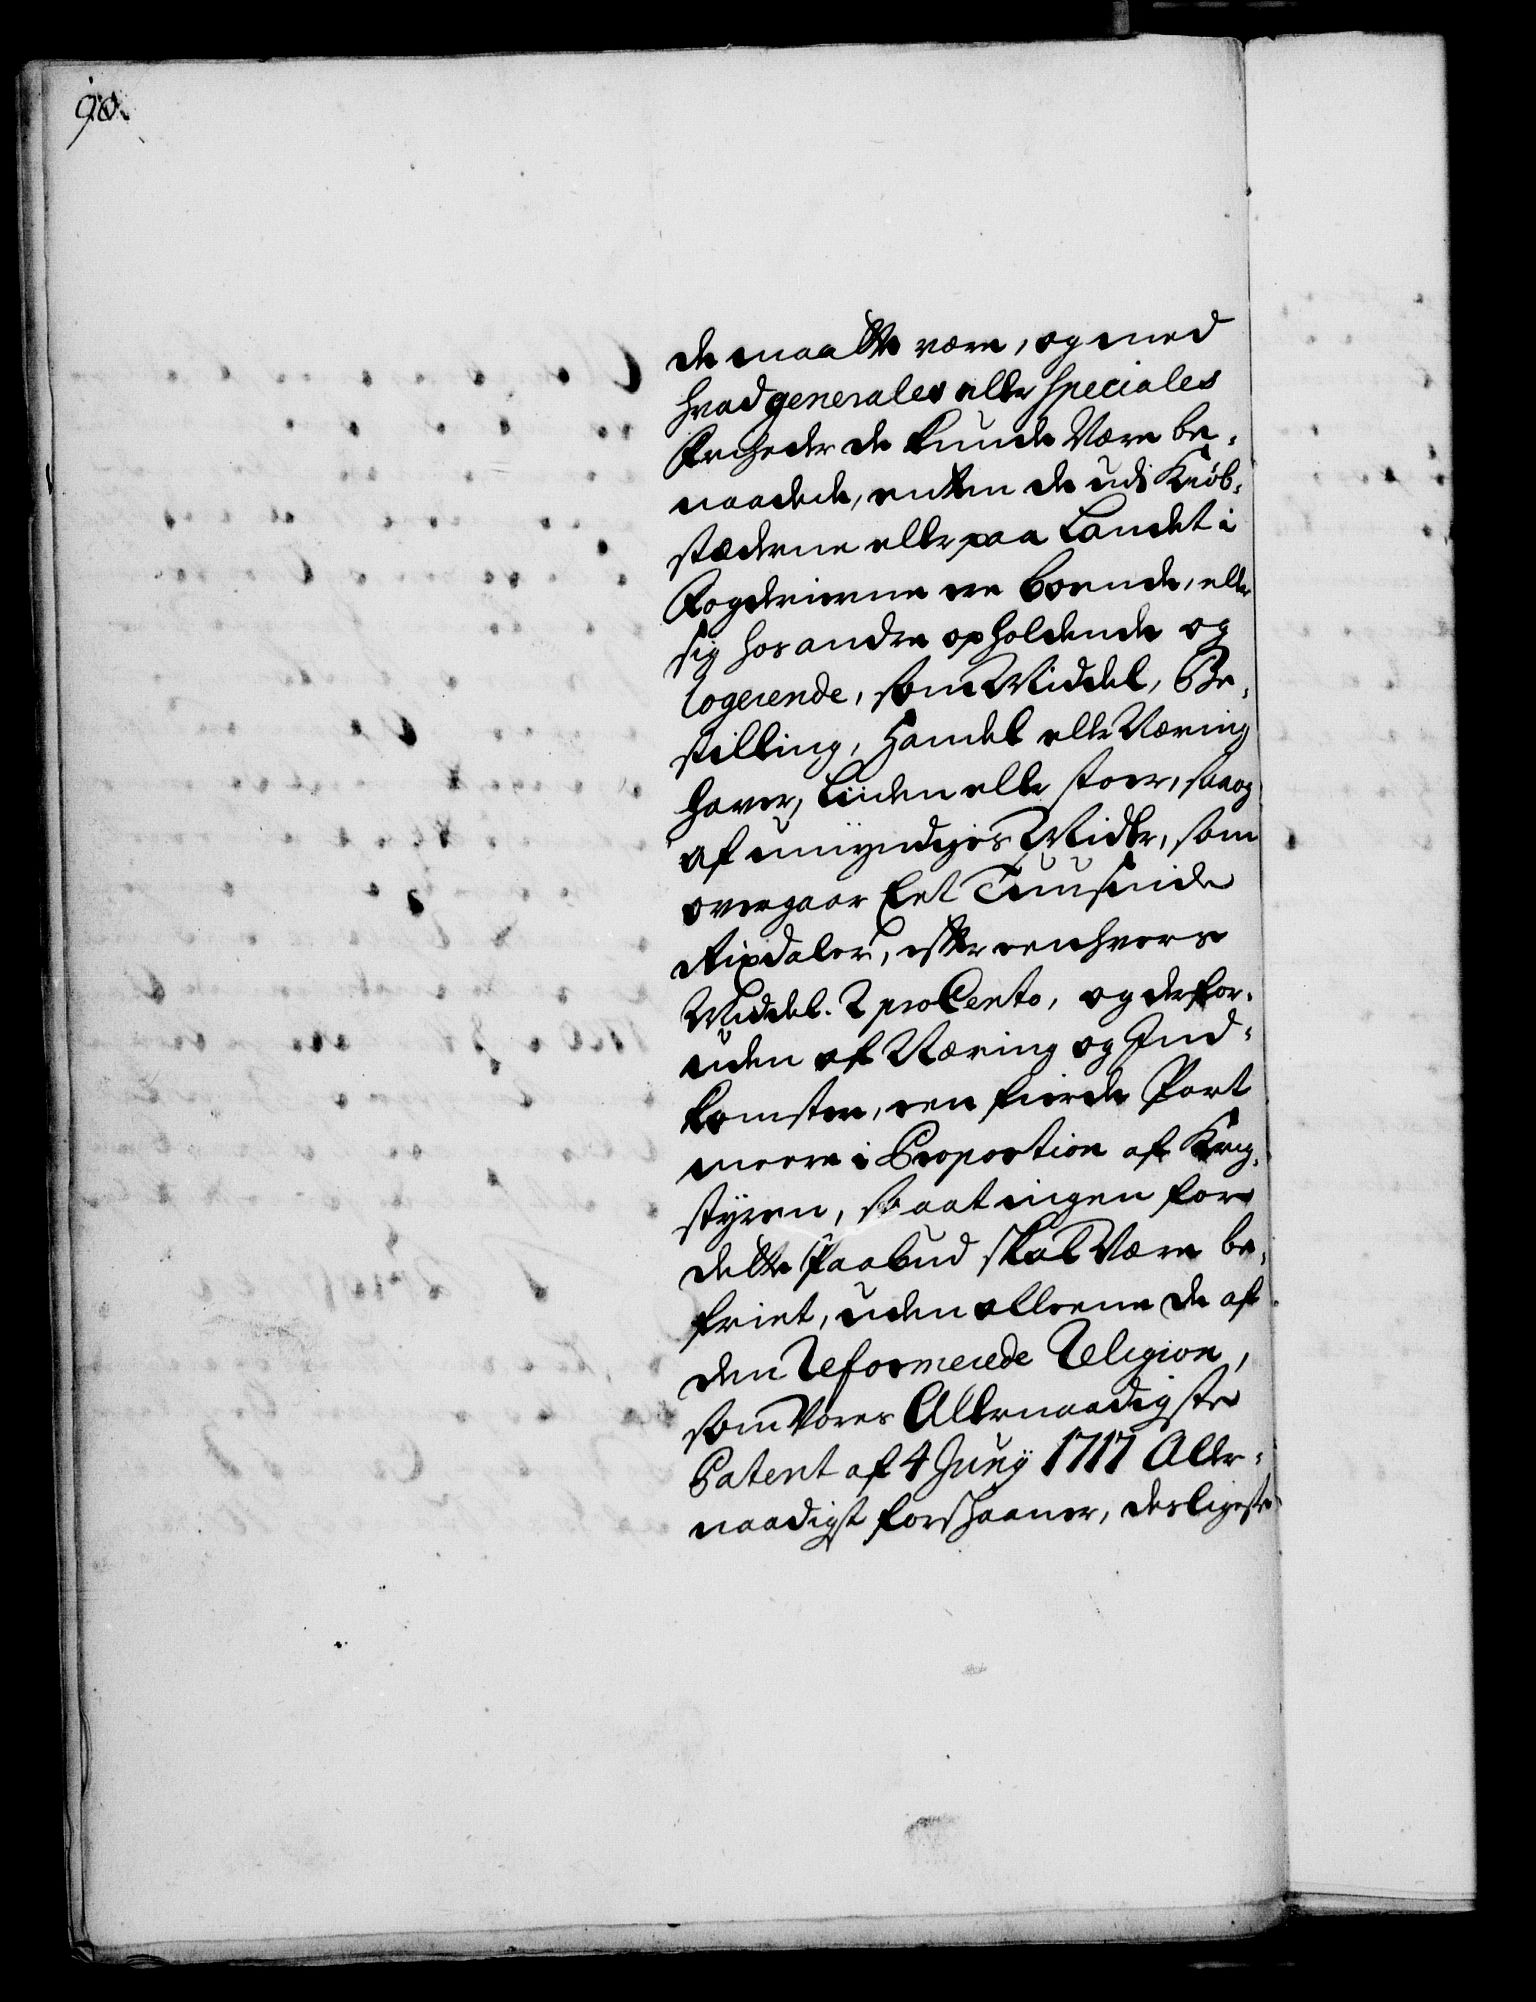 90.
de maatte være, og med
hvad generales eller speciales
Friheder de kunde Være be-
naadede, enten de udi Kiøb-
stæderne eller paa Landet i
Fogderierne ere boende, eller
sig hos andre opholdende og
logerende, som Middel, Be-
stilling, Handel eller Næring
haver, Liiden eller stoer, saa og
af umyndiges Midler, som
overgaar Eet Tuusinde
Rixdaler, efter eenhvers
Middel. 2 pro Cento, og derfor-
uden af Næring og Ind-
komster, een fierde Part
meere i Proportion af Krig-
styren, saa at ingen for
dette Paabud skal Være be-
friet, uden alleene de af
den Reformerede Religion,
som Vores Allernaadigste
Patent af 4 Junij 1717 Aller-
naadigst forskaaner, desligeste